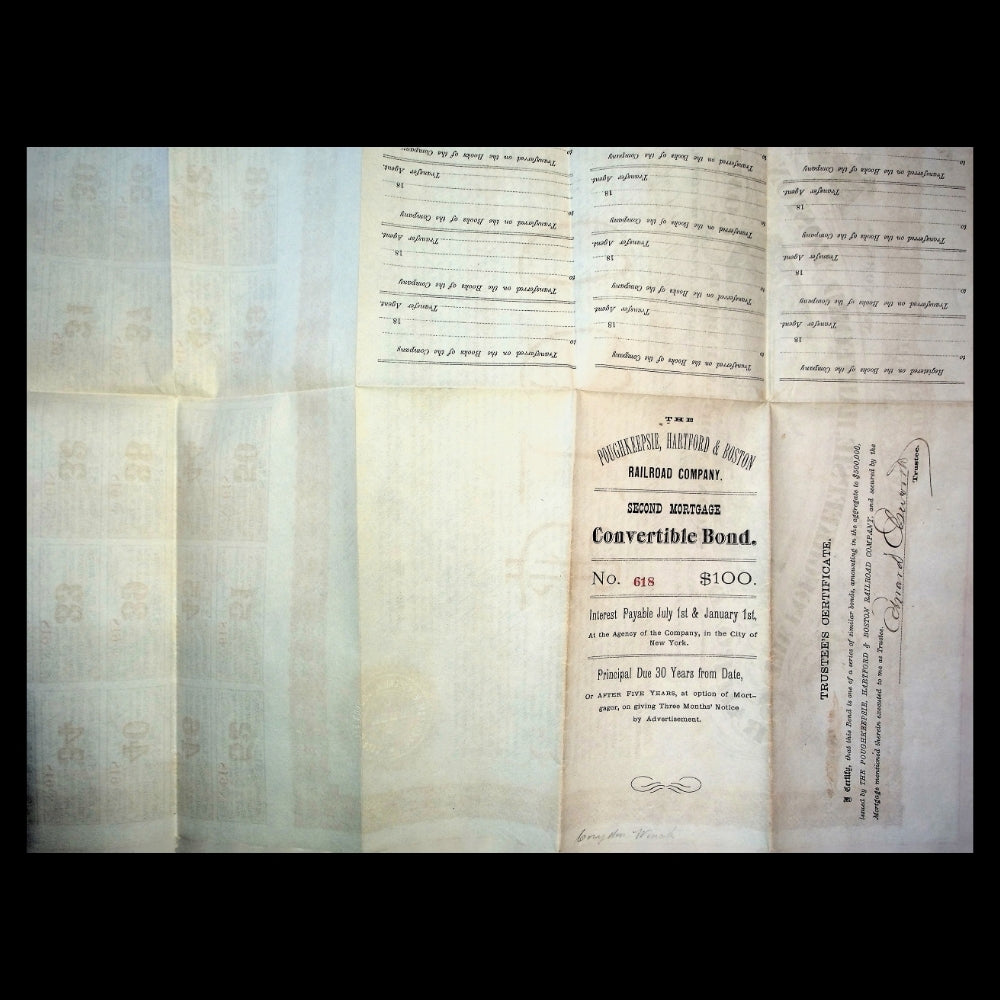 Transferred on the Books of the Company
Transfer Agent.
18
to
Transferred on the Books of the Company
Transfer Agent.
18
to
Transferred on the Books of the Company
Transfer Agent.
18
to
Transferred on the Books of the Company
to
Transferred on the Books of the Company
Transfer Agent.
18
to
Transferred on the Books of the Company
Transfer Agent.
18
to
Transferred on the Books of the Company
Transfer Agent.
18
to
Transferred on the Books of the Company
to
Transferred on the Books of the Company
Transfer Agent.
18
to
Transferred on the Books of the Company
Transfer Agent.
18
to
Transferred on the Books of the Company
Transfer Agent.
18
to
Registered on the Books of the Company
THE
POUGHKEEPSIE, HARTFORD & BOSTON
RAILROAD COMPANY.
SECOND MORTGAGE
Convertible Bond.
No. 618 $100.
Interest Payable July 1st & January 1st,
At the Agency of the Company, in the City of
New York.
Principal Due 30 Years from Date,
Or AFTER FIVE YEARS, at option of Mort-
gagor, on giving Three Months' Notice
by Advertisement.
TRUSTEE'S CERTIFICATE.
I Certify, that this Bond is one of a series of similar bonds, amounting in the aggregate to $500,000,
issued by THE POUGHKEEPSIE, HARTFORD & BOSTON RAILROAD COMPANY, and secured by the
Mortgage mentioned therein executed to me as Trustee.
Trustee.